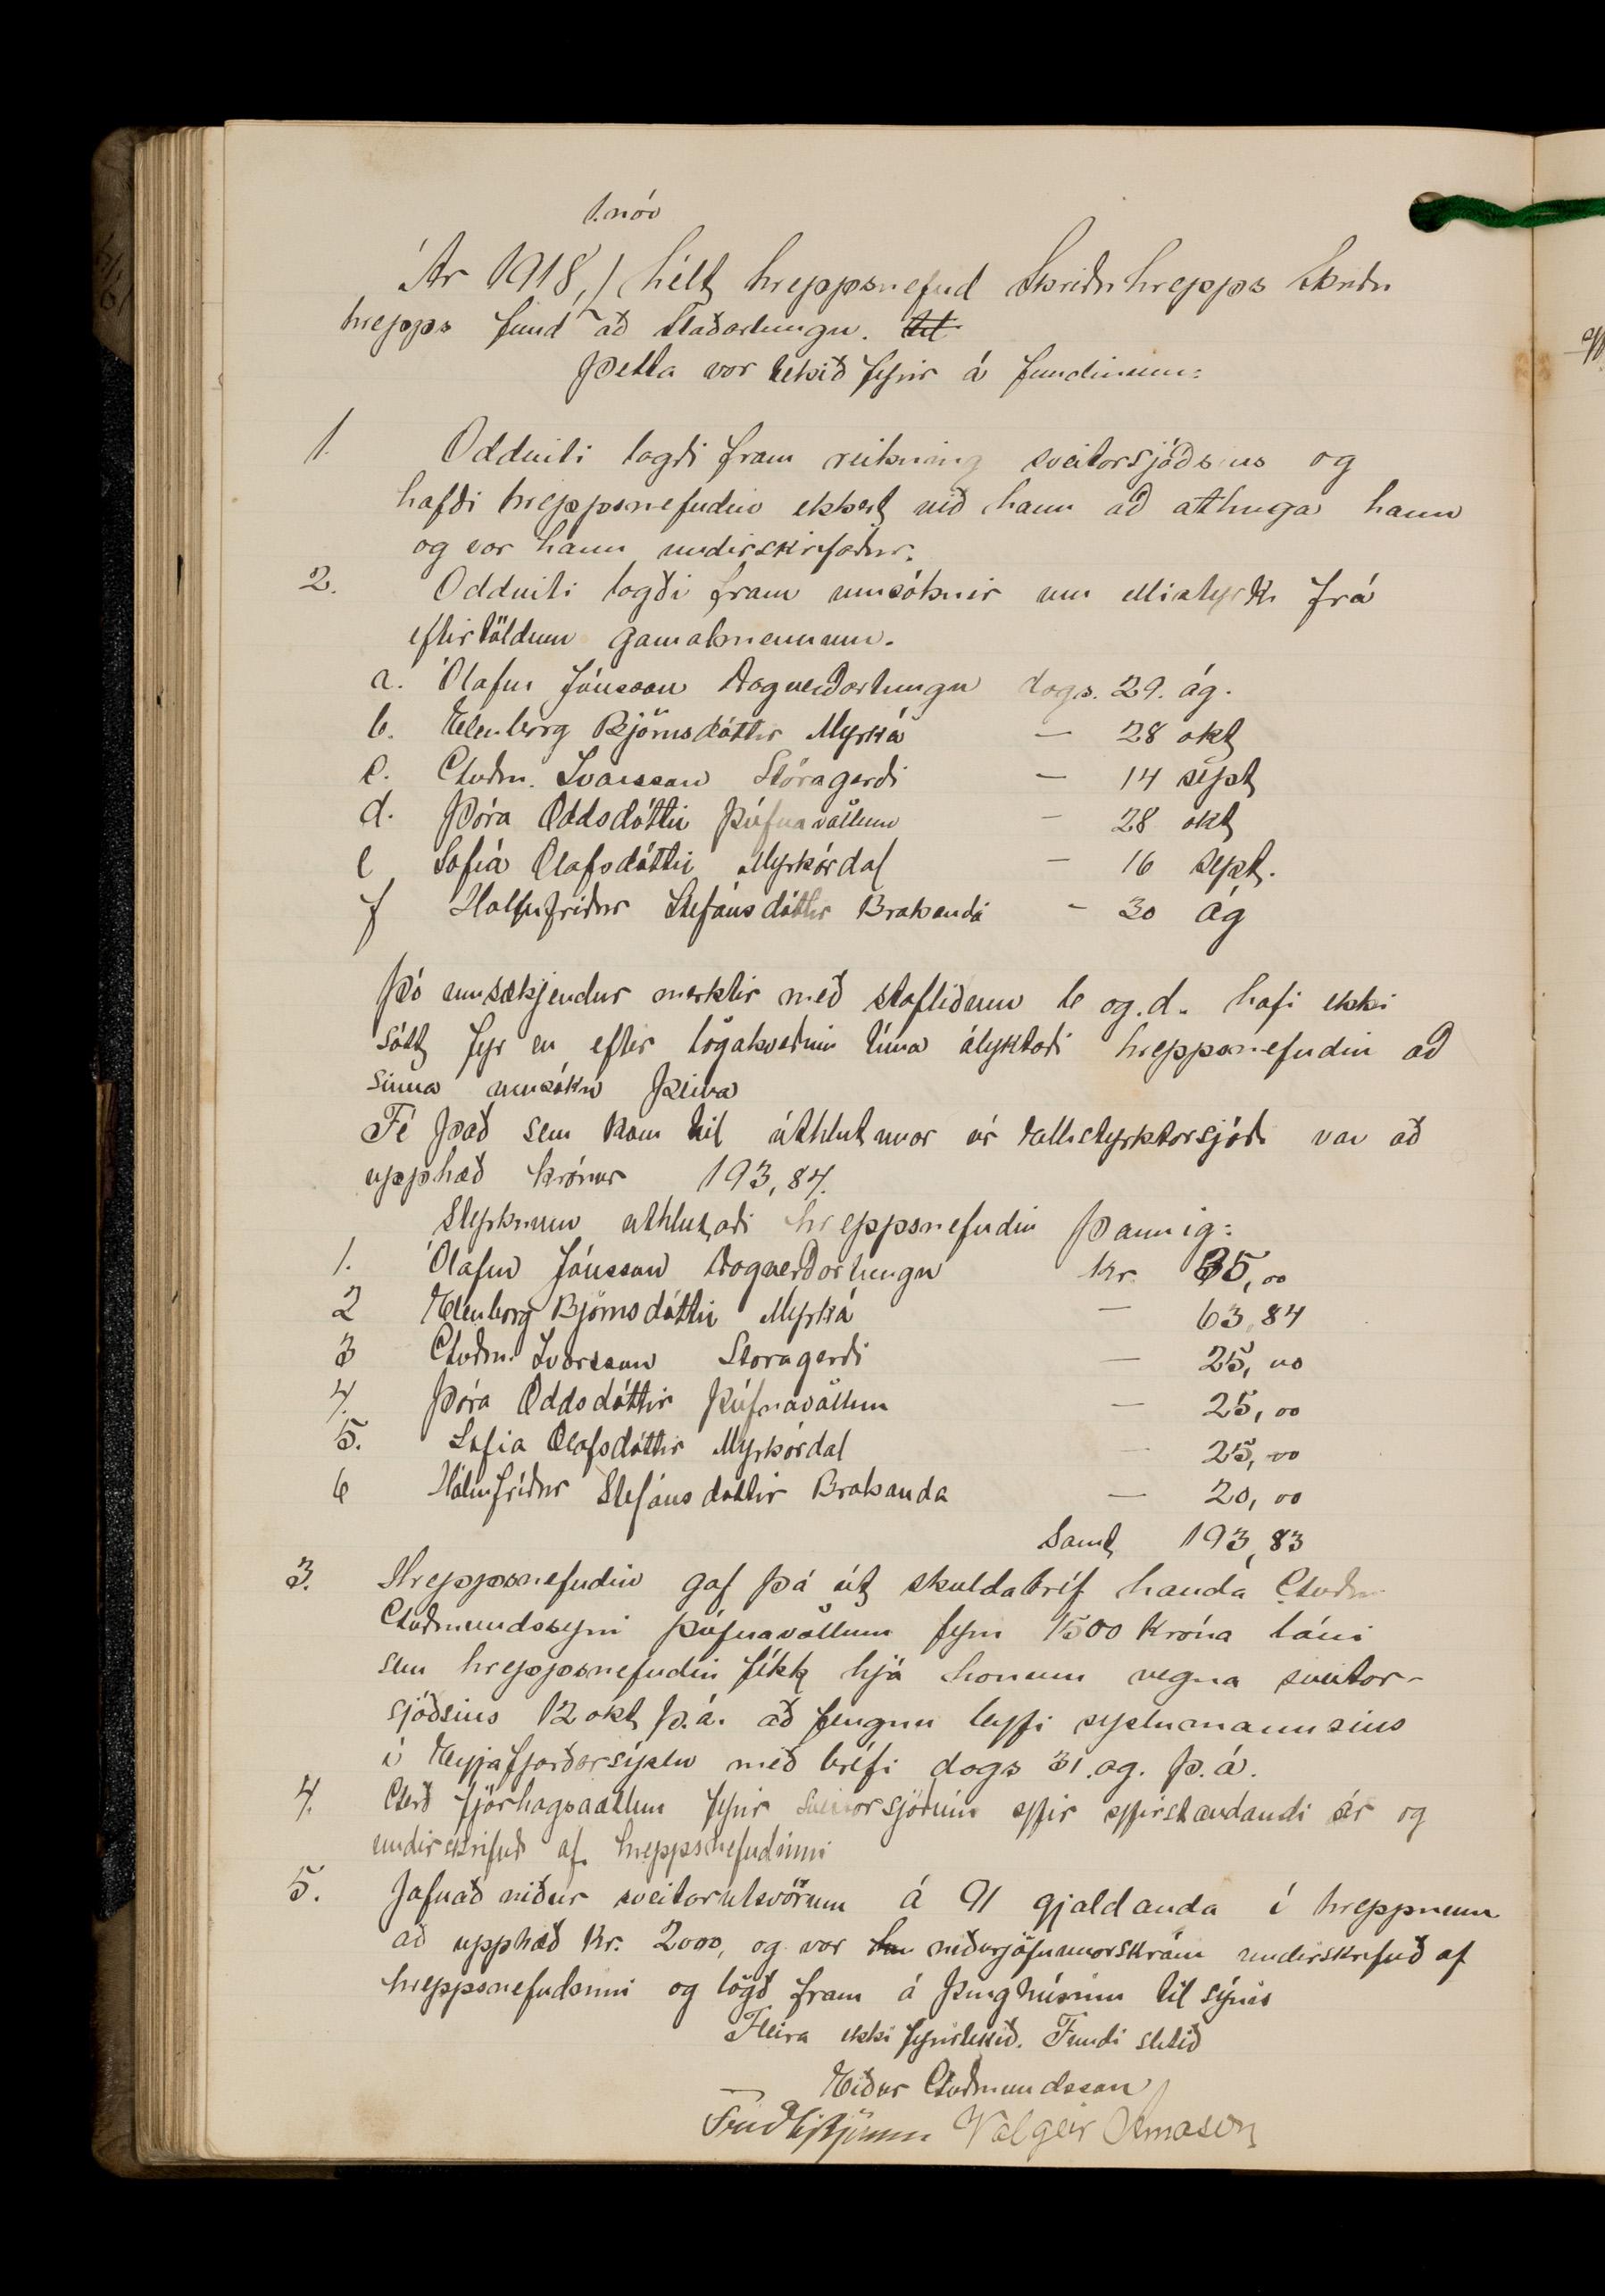 1. nóv
Ár 1918, hélt hreppsnefnd Skriðuhrepps Skriðu
hrepps fund að Staðartungu.
Þetta var tekið fyrir á fundinum:
1. Oddviti lagði fram reikning sveitarsjóðsins og
hafði hreppsnefndin ekkert við hann að athuga hann
og var hann undirskrifaður.
2. Oddviti lagði fram umsóknir um ellistyrk frá
eftirtöldum gamalmennum.
a. Ólafur Jónsson Dagverðartungu dags. 29. ág.
b. Elenborg Björnsdóttir Myrká — 28 okt
c. Guðm. Ivarsson Stóragerði — 14 sept
d. Þóra Oddsdóttir Þúfnavöllum — 28 okt
e Sofía Ólafsdóttir Myrkárdal — 16 sept.
f Hólmfríður Stefánsdóttir Brakanda - 30 ág
Þó umsækjendur merktir með stafliðum b og. d. hafi ekki
sótt fyr en eftir lögákveðinn tíma ályktaði hreppsnefndin að
sinna umsókn þeirra
Fé það sem kom til úthlutunar úr Ellistyrktarsjóði var að
upphæð krónur 193,84.
Styrknum úthlutaði hreppsnefndin þannig:
1. Ólafur Jónsson Dagverðartungu kr. 35,00
2 Elenborg Björnsdóttir Myrká — 63,84
3 Guðm. Ivarsson Storagerði — 25,00
4. Þóra Oddsdóttir Þúfnavöllum — 25,00
5. Sofia Ólafsdóttir Myrkárdal — 25,00
6 Hólmfríður Stefánsdóttir Brakanda — 20,00
Samt 193,83
3. Hreppsnefndin gaf þá út skuldabréf handa Guðm
Guðmundssyni Þúfnavöllum fyrir 1500 króna láni
sem hreppsnefndin fékk hjá honum vegna sveitar-
sjóðsins 12 okt þ.á. að fengnu leyfi sýslumannsins
í Eyjafjarðarsýslu með bréfi dags 31. ág. þ.á.
4. Gerð fjárhagsáætlun fyrir sveitarsjóðinn yfir yfirstandandi ár og
undirskrifuð af hreppsnefndinni
5. Jafnað niður sveitarútsvörum á 91 gjaldanda í hreppnum
að upphæð kr. 2000, og var niðurjöfnunarskráin undirskrifuð af
hreppsnefndinni og lögð fram á þinghúsinu til sýnis
Fleira ekki fyrirtekið. Fundi slitið
Eiður Guðmundsson
Valgeir Árnason